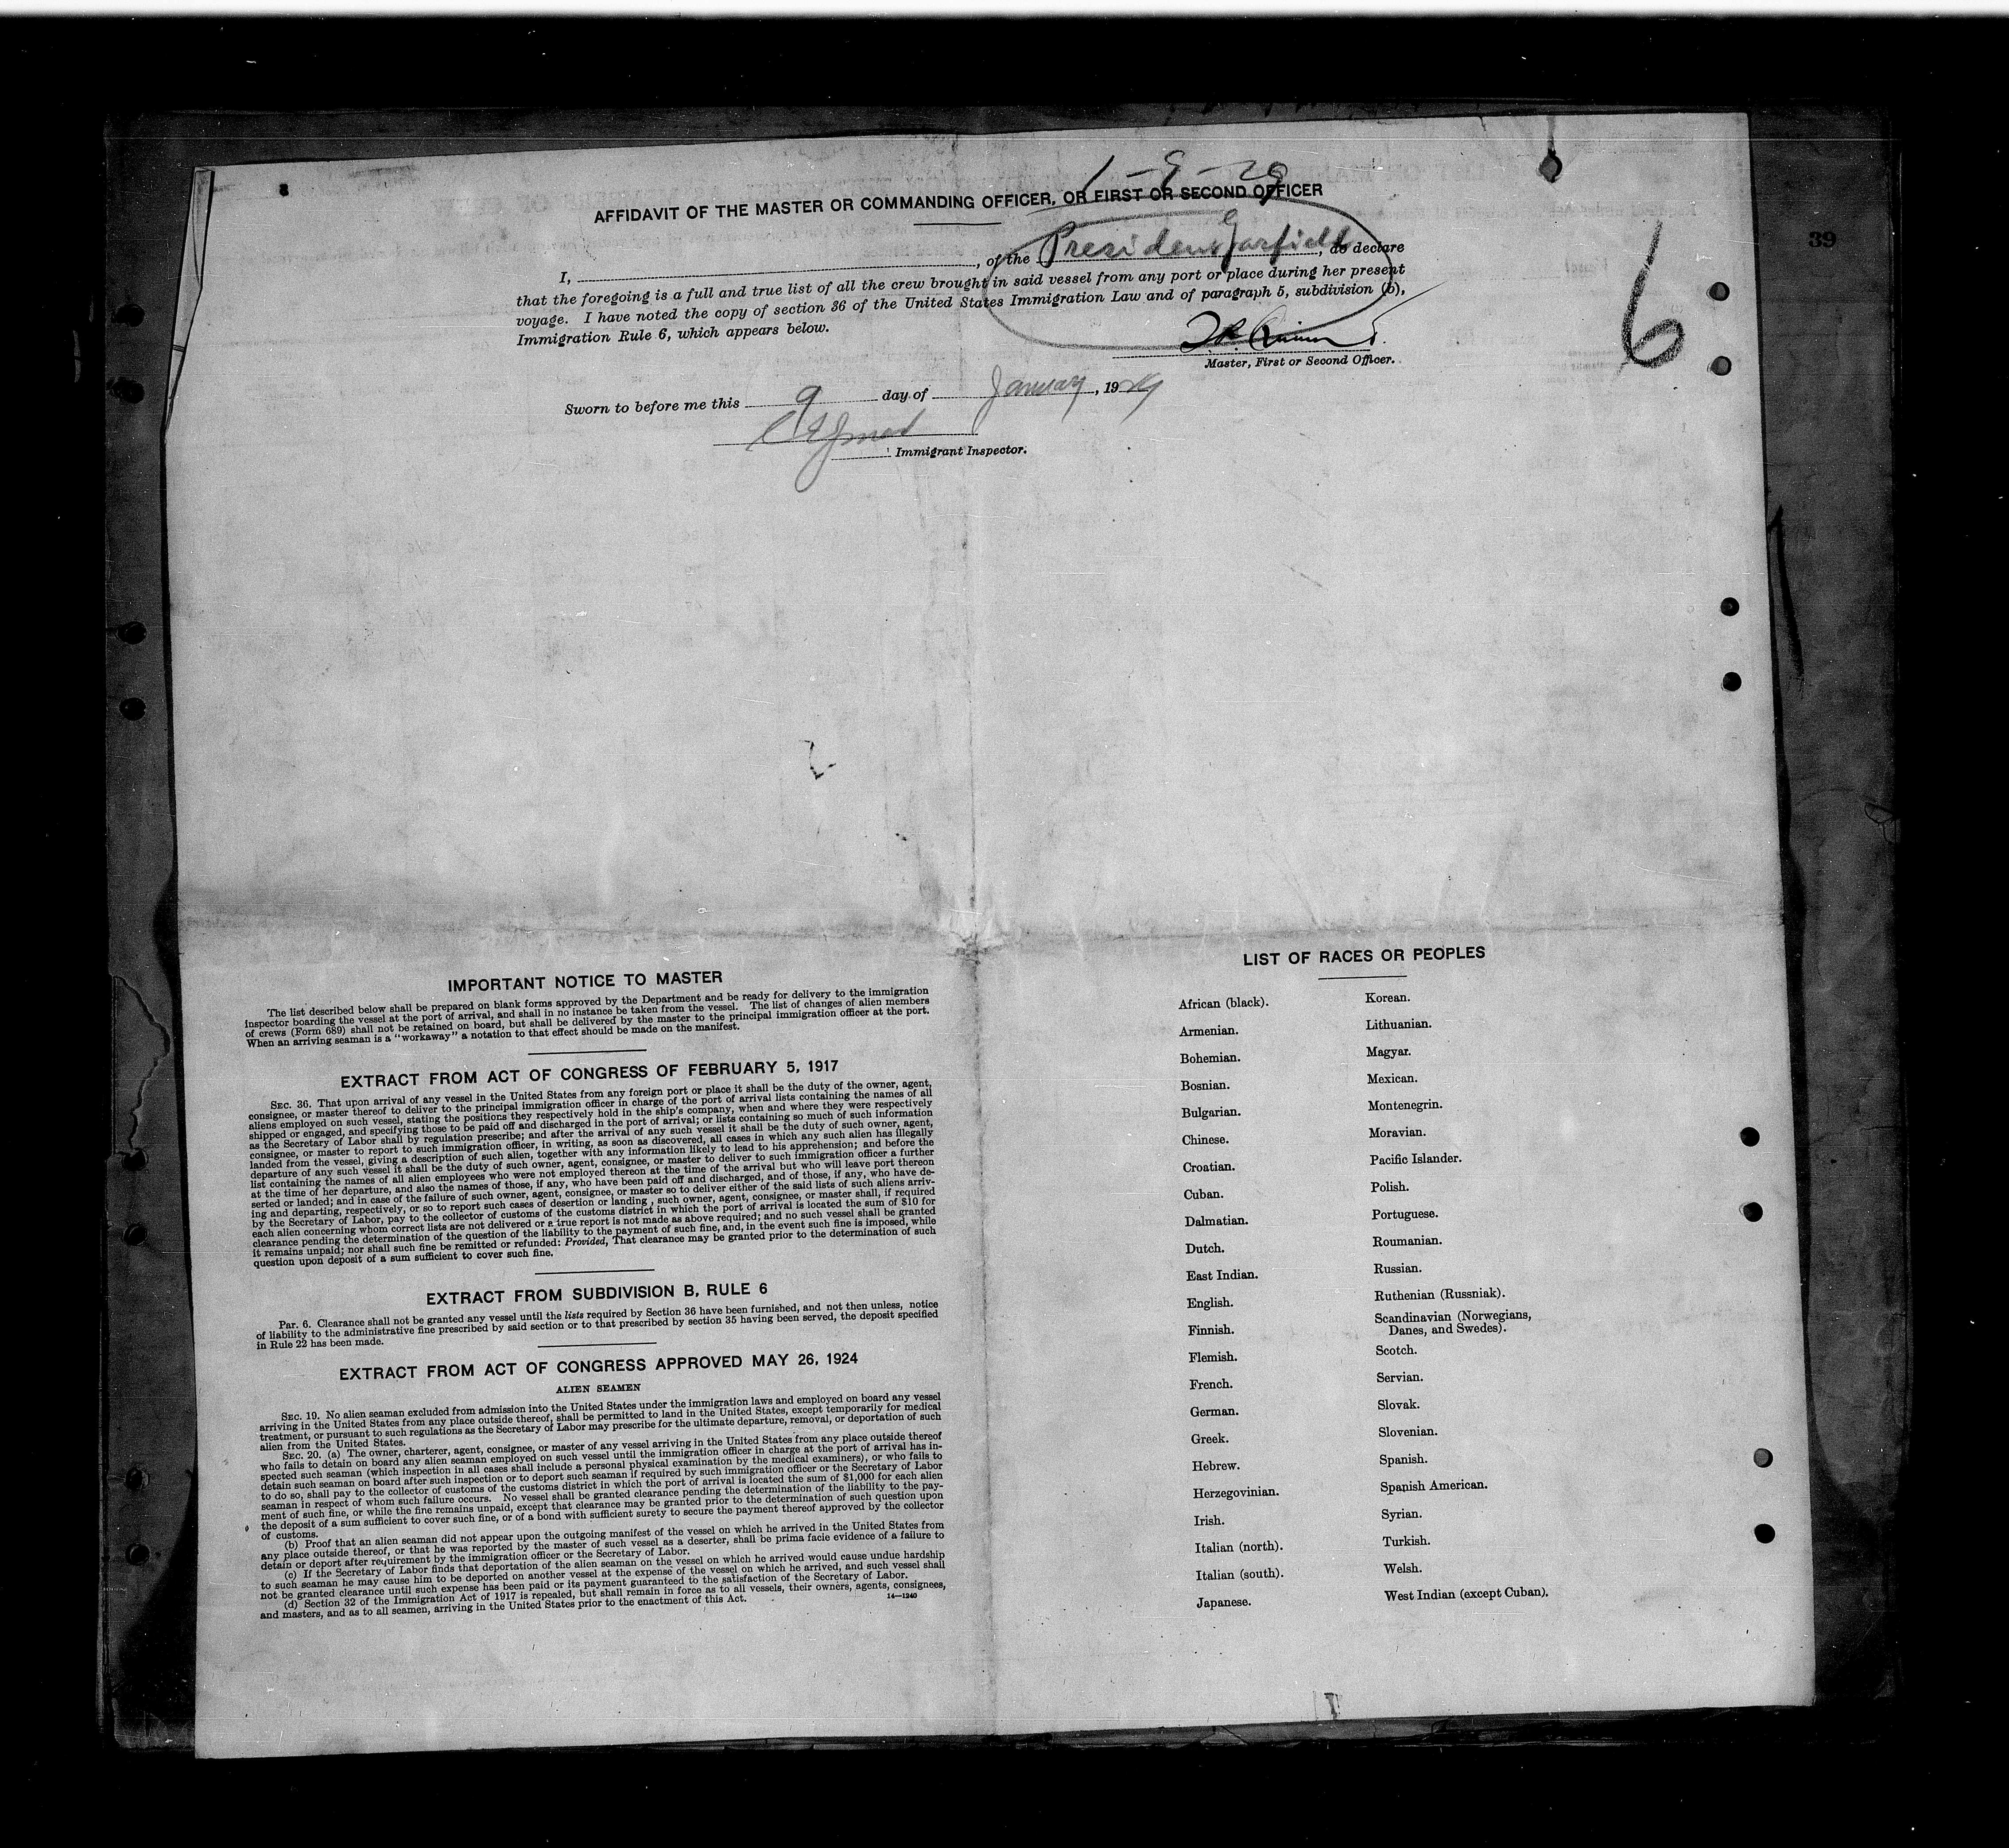 1-9-29
AFFIDAVIT OF THE MASTER OR COMMANDING OFFICER, OR FIRST OR SECOND OFFICER
39
6
I, , of the President Garfield, do declare
that the foregoing is a full and true list of all the crew brought in said vessel from any port or place during her present
voyage. I have noted the copy of section 36 of the United States Immigration Law and of paragraph 5, subdivision (b),
Immigration Rule 6, which appears below.
Master, First or Second Officer.
Sworn to before me this 9 day of January, 1929
Immigrant Inspector.
IMPORTANT NOTICE TO MASTER
The list described below shall be prepared on blank forms approved by the Department and be ready for delivery to the immigration
inspector boarding the vessel at the port of arrival, and shall in no instance be taken from the vessel. The list of changes of alien members
of crews (Form 689) shall not be retained on board, but shall be delivered by the master to the principal immigration officer at the port.
When an arriving seaman is a "workaway" a notation to that effect should be made on the manifest.
EXTRACT FROM ACT OF CONGRESS OF FEBRUARY 5, 1917
SEC. 36. That upon arrival of any vessel in the United States from any foreign port or place it shall be the duty of the owner, agent,
consignee, or master thereof to deliver to the principal immigration officer in charge of the port of arrival lists containing the names of all
aliens employed on such vessel, stating the positions they respectively hold in the ship's company, when and where they were respectively
shipped or engaged, and specifying those to be paid off and discharged in the port of arrival; or lists containing so much of such information
as the Secretary of Labor shall by regulation prescribe; and after the arrival of any such vessel it shall be the duty of such owner, agent,
consignee, or master to report to such immigration officer, in writing, as soon as discovered, all cases in which any such alien has illegally
landed from the vessel, giving a description of such alien, together with any information likely to lead to his apprehension; and before the
departure of any such vessel it shall be the duty of such owner, agent, consignee, or master to deliver to such immigration officer a further
list containing the names of all alien employees who were not employed thereon at the time of the arrival but who will leave port thereon
at the time of her departure, and also the names of those, if any, who have been paid off and discharged, and of those, if any, who have de-
serted or landed; and in case of the failure of such owner, agent, consignee, or master so to deliver either of the said lists of such aliens arriv-
ing and departing, respectively, or so to report such cases of desertion or landing, such owner, agent, consignee, or master shall, if required
by the Secretary of Labor, pay to the collector of customs of the customs district in which the port of arrival is located the sum of $10 for
each alien concerning whom correct lists are not delivered or a true report is not made as above required; and no such vessel shall be granted
clearance pending the determination of the question of the liability to the payment of such fine, and, in the event such fine is imposed, while
it remains unpaid; nor shall such fine be remitted or refunded: Provided, That clearance may be granted prior to the determination of such
question upon deposit of a sum sufficient to cover such fine.
EXTRACT FROM SUBDIVISION B, RULE 6
Par. 6. Clearance shall not be granted any vessel until the lists required by Section 36 have been furnished, and not then unless, notice
of liability to the administrative fine prescribed by said section or to that prescribed by section 35 having been served, the deposit specified
in Rule 22 has been made.
EXTRACT FROM ACT OF CONGRESS APPROVED MAY 26, 1924
ALIEN SEAMEN
SEC. 19. No alien seaman excluded from admission into the United States under the immigration laws and employed on board any vessel
arriving in the United States from any place outside thereof, shall be permitted to land in the United States, except temporarily for medical
treatment, or pursuant to such regulations as the Secretary of Labor may prescribe for the ultimate departure, removal, or deportation of such
alien from the United States.
SEC. 20. (a) The owner, charterer, agent, consignee, or master of any vessel arriving in the United States from any place outside thereof
who fails to detain on board any alien seaman employed on such vessel until the immigration officer in charge at the port of arrival has in-
spected such seaman (which inspection in all cases shall include a personal physical examination by the medical examiners), or who fails to
detain such seaman on board after such inspection or to deport such seaman if required by such immigration officer or the Secretary of Labor
to do so, shall pay to the collector of customs of the customs district in which the port of arrival is located the sum of $1,000 for each alien
seaman in respect of whom such failure occurs. No vessel shall be granted clearance pending the determination of the liability to the pay-
ment of such fine, or while the fine remains unpaid, except that clearance may be granted prior to the determination of such question upon
the deposit of a sum sufficient to cover such fine, or of a bond with sufficient surety to secure the payment thereof approved by the collector
of customs.
(b) Proof that an alien seaman did not appear upon the outgoing manifest of the vessel on which he arrived in the United States from
any place outside thereof, or that he was reported by the master of such vessel as a deserter, shall be prima facie evidence of a failure to
detain or deport after requirement by the immigration officer or the Secretary of Labor.
(c) If the Secretary of Labor finds that deportation of the alien seaman on the vessel on which he arrived would cause undue hardship
to such seaman he may cause him to be deported on another vessel at the expense of the vessel on which he arrived, and such vessel shall
not be granted clearance until such expense has been paid or its payment guaranteed to the satisfaction of the Secretary of Labor.
(d) Section 32 of the Immigration Act of 1917 is repealed, but shall remain in force as to all vessels, their owners, agents, consignees,
and masters, and as to all seamen, arriving in the United States prior to the enactment of this Act.
14—1240
LIST OF RACES OR PEOPLES
African (black).
Armenian.
Bohemian.
Bosnian.
Bulgarian.
Chinese.
Croatian.
Cuban.
Dalmatian.
Dutch.
East Indian.
English.
Finnish.
Flemish.
French.
German.
Greek.
Hebrew.
Herzegovinian.
Irish.
Italian (north).
Italian (south).
Japanese.
Korean.
Lithuanian.
Magyar.
Mexican.
Montenegrin.
Moravian.
Pacific Islander.
Polish.
Portuguese.
Roumanian.
Russian.
Ruthenian (Russniak).
Scandinavian (Norwegians,
Danes, and Swedes).
Scotch.
Servian.
Slovak.
Slovenian.
Spanish.
Spanish American.
Syrian.
Turkish.
Welsh.
West Indian (except Cuban).